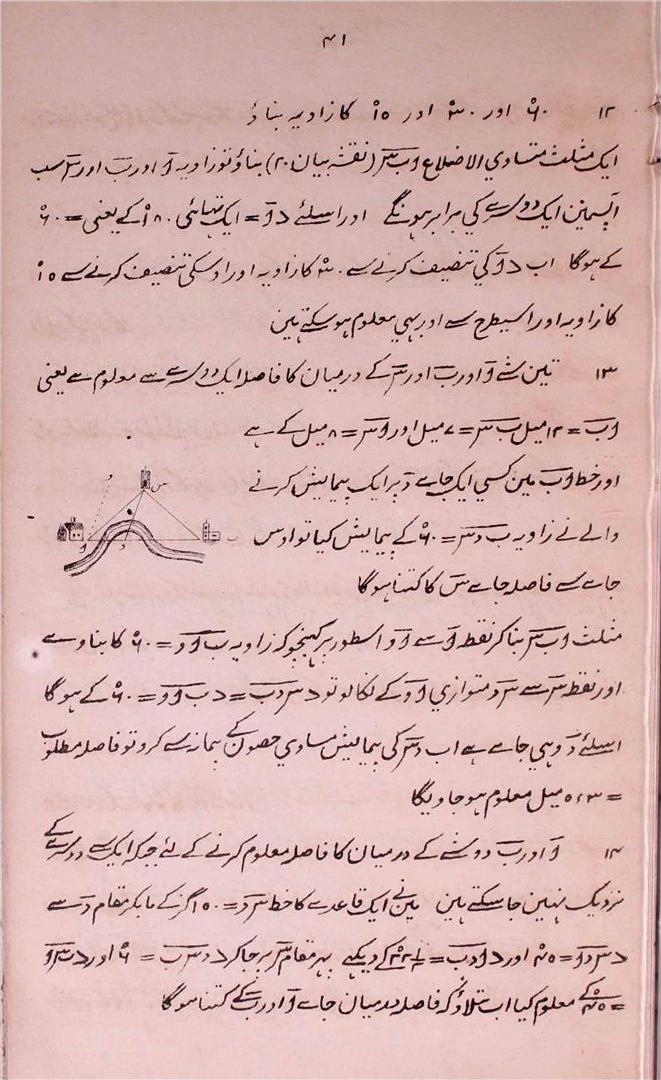 ۴۱
۱۲ ۶۰° اور ۳۰° اور ۱۵° کا زاویہ بناؤ
ایک مثلث متساوي الاضلاع اب س (نقشہ بیان ۲۰) بناؤ تو زاویہ ا اور ب اور س سب
آپسمین ایک دوسرے کي برابر ہونگے اور اسلئے > ا = ایک تہائی ۱۸۰° کے یعنی = ۶۰°
کے ہوگا اب > ا کي تنصیف کرنے سے ۳۰° کا زاویہ اور اوسکی تنصیف کرنے سے ۱۵°
کا زاویہ اور اسیطرح سے اور بہی معلوم ہو سکتے ہین
۱۳ تین شے ا اور ب اور س کے درمیان کا فاصلہ ایک دوسرے سے معلوم ہے یعنی
اب = ۱۲ میل ب س = ۷ میل اور اس = ۸ میل کے ہے
اور خط اب مین کسي ایک جاے د پر ایک پیمایش کرنے
والے نے زاویہ ب د س = ۶۰° کے پیمایش کیا تو اوس
جاے سے فاصلہ جاے س کا کتنا ہوگا
س
ا د ب
مثلث اب س بنا کر نقطہ ا سے او اسطور پر کہنچو کہ زاویہ ب او = ۶۰° کا بناوے
اور نقطہ س سے س د متوازي او کے نکالو تو > س د ب = > ب او = ۶۰° کے ہوگا
اسلئے د وہي جاے ہے اب د س کی پیمایش مساوي حصون کے پیمانہ سے کرو تو فاصلہ مطلوب
= ۵٫۳ میل معلوم ہو جاویگا
۱۴ ا اور ب دو شے کے درمیان کا فاصلہ معلوم کرنے کے لئے جبکہ ایک سے دوسرے کے
نزدیک نہین جا سکتے ہین مین نے ایک قاعدے کا خط س د = ۱۵۰ گز کے ماپکر مقام د سے
> س د ا = ۴۵° اور > ا د ب = کے دیکہے پہر مقام س پر جا کر > د س ب = ۶۰° اور > ب س ا
= کے معلوم کیا اب بتلاؤ کہ فاصلہ درمیان جاے ا اور ب کے کتنا ہوگا